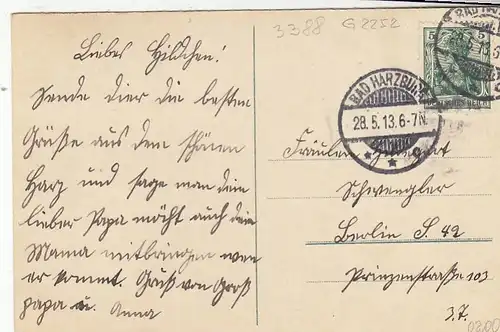 3388 G 2252
Liebes Hildchen!
Sende dier die besten
Grüße aus dem schönen
Harz und sage man dein
lieber Papa möcht auch dein
Mama mitbringen wen
er kommt. Gruß von Groß
papa u. Anna
BAD HARZBURG
28.5.13.6-7N.
BAD HARZ
5
Fräulein
Schwengler
Berlin S. 42
Prinzenstraße 103
3.T.